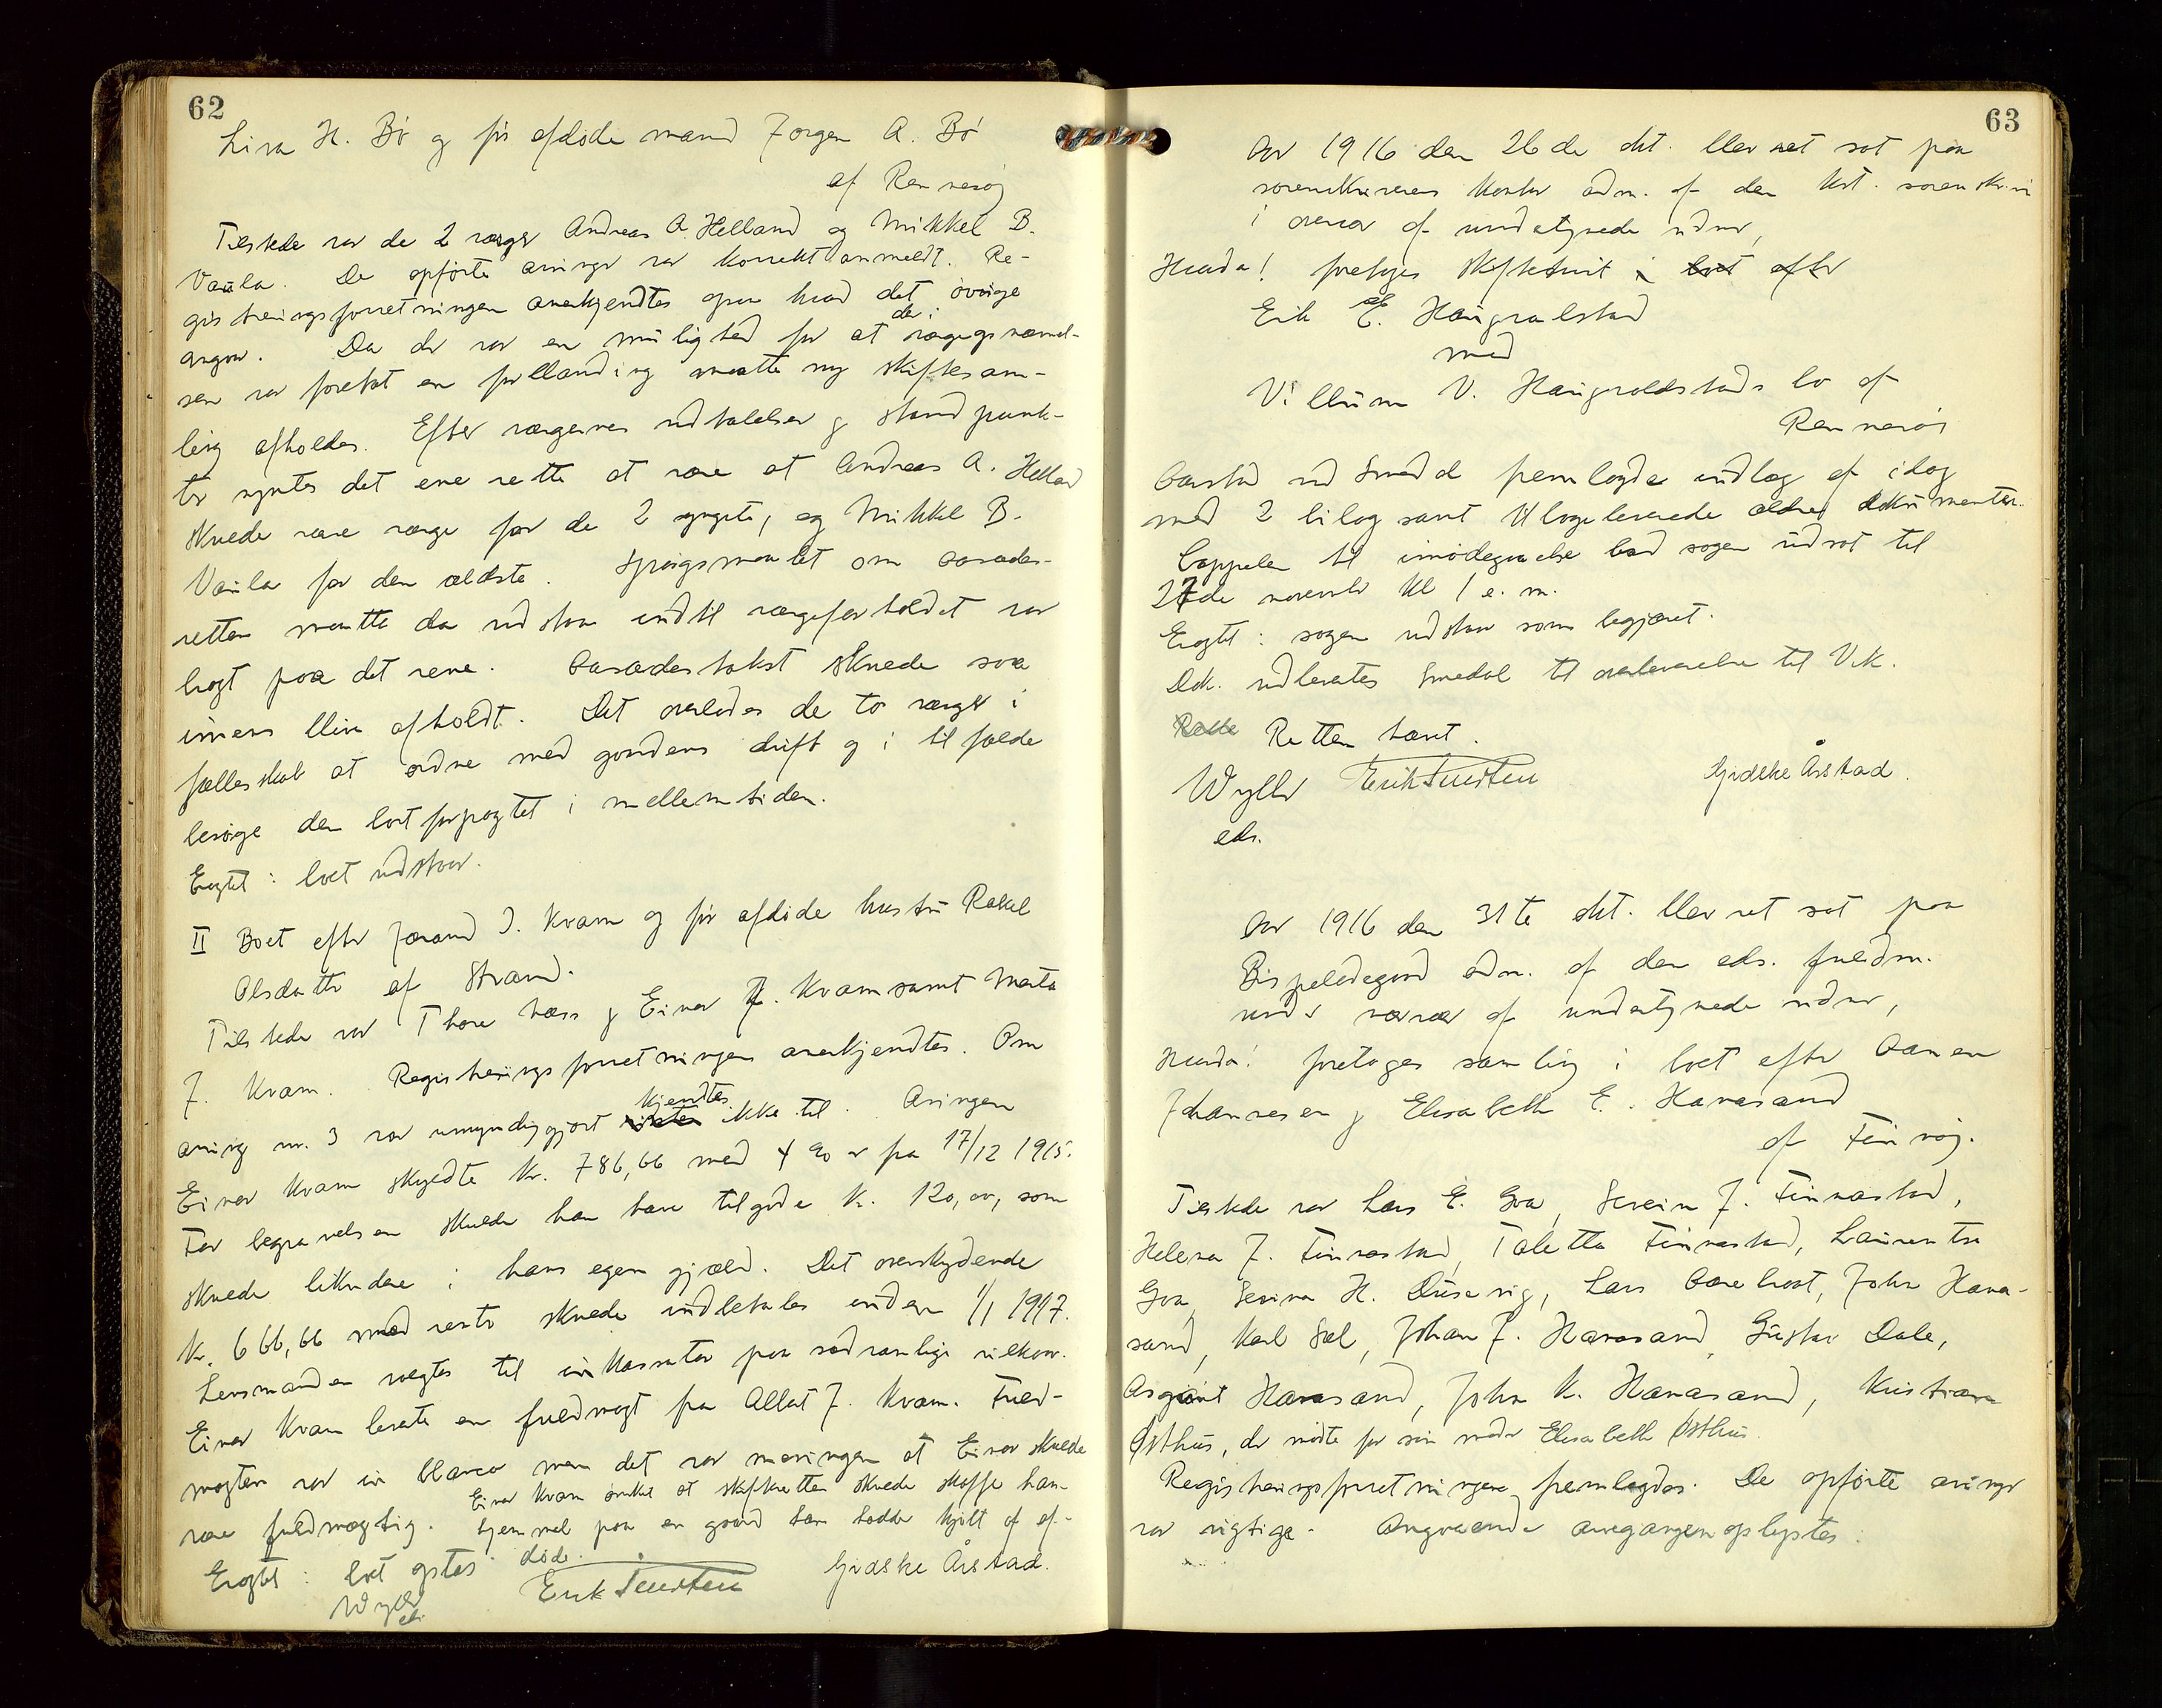 62
Lina H. Bø og før afdøde mand Jorgen A. Bø
af Rennesøy
Tilstede var de 2 værger Andreas A. Helland og Mikkel B.
Vaula. De opførte arvinger var korrekt anmeldt. Re-
gistreringsforretningen anerkjendtes ogsaa hvad det øvrige
angaar. Da der var en mulighed for at der i værgeopnævnel-
sen var foretat en forllanding maatte ny skiftesam-
ling afholdes. Efter værgernes udtalelser og standpunk-
ter syntes det ene rette at være at Andreas A. Helland
skulde være værge for de 2 yngste, og Mikkel B.
Vaula for den ældste. Spørgsmaalet om aasædes-
retten maatte da udstaa indtil værgeforholdet var
bragt paa det rene. Aasædestakst skulde saa
imens blive afholdt. Det overlodes de to værger i
fællesskab at ordne med gaardens drift og i tilfælde
besørge den bortforpagtet i mellemtiden.
Eragtet: boet udstaar.
II Boet efter Jørand J. Kvam og før afdøde hustru Rakel
Olsdatter af Strand.
Tilstede var Thore Næss og Einar J. Kvam samt Marta
J. Kvam. Registreringsforretningen anerkjendtes. Om
arving nr. 3 var umyndiggjort kjendtes ikke til. Arvingen
Einar Kvam skyldte kr. 786,66 med 4 % r fra 17/12 1915.
For begravelsen skulde han have tilgode kr. 120,00, som
skulde likvidere i hans egen gjæld. Det overskydende
kr. 666,66 med renter skulde indbetales inden 1/1 1917.
Lensmanden valgtes til inkassator paa sædvanlige vilkaar.
Einar Kvam leverte en fuldmagt fra Albert J. Kvam. Fuld-
magten var in blanco men det var meningen at Einar skulde
være fuldmægtig. Einar Kvam ønsket at skifteretten skulde skaffe ham
hjemmel paa en gaard han hadde kjøbt af af-
døde.
Eragtet: boet opstaar.
Wyller
eds.
Erik Knudsen
Gjedske Årstad.
63
Aar 1916 den 26de okt. blev ret sat paa
sorenskriverens kontor adm. af den kst. sorenskriver
i overvær af undertegnede vidner,
Hvorda! foretoges skiftetvist i boet efter
Erik E. Haugvalstad
med
Villum V. Haugvaldstads bo af
Rennesøy
Aarstad ved Smedal fremlagde indlæg af idag
med 2 bilag samt tilbageleverede ældre dokumenter.
Cappelen til imødegaaelse bad sagen udsat til
27de november kl 1 e. m.
Eragtet: sagen udstaar som begjæret.
Dok. udleveres Smedal til overleverelse til V.K.
Retten hævet.
Wyller
eds.
Erik Knudsen
Gjedske Årstad.
Aar 1916 den 31te okt. blev ret sat paa
Bispeladegaard adm. af den eds. fuldm.
under nærvær af undertegnede vidner,
Hvorda! foretoges samling i boet efter Aanen
Johannesen og Elisabeth E. Hanasand
af Finnøy.
Tilstede var Lars E. Goa, Severin J. Finnestad,
Helena J. Finnestad, Taletta Finnestad, Laurentse
Goa, Serina H. Dusevig, Lars Aarebrot, John Hana-
sand, Karl Sæl, Johan J. Hanasand, Gustav Dale,
Asgaut Hanasand, John K. Hanasand, Kristian
Østhus, der mødte for sin moder Elisabeth Østhus.
Registreringsforretningen fremlagdes. De opførte arvinger
var rigtige. Angaaende arvegangen oplystes: